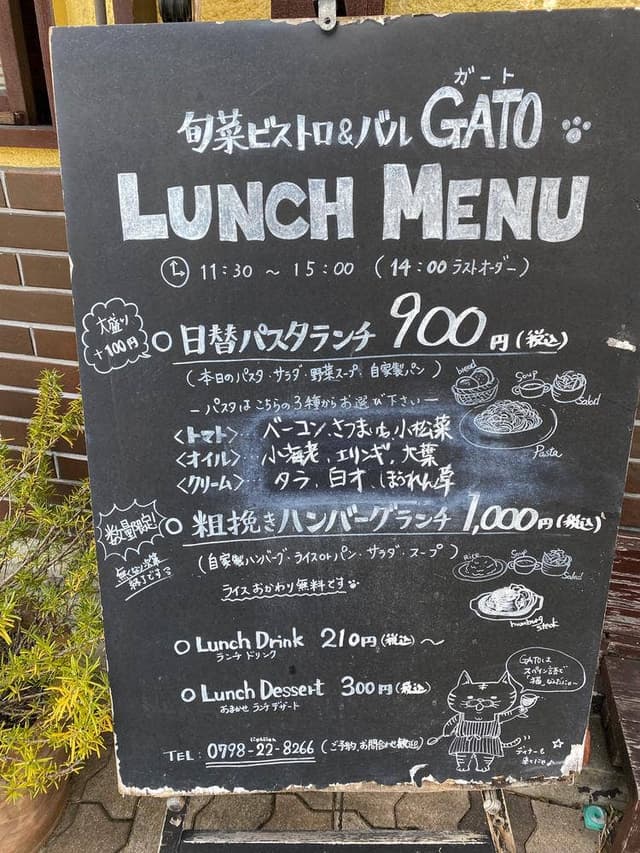 ガート
旬菜ビストロ&バル GATO
LUNCH MENU
11:30 ~ 15:00 (14:00 ラストオーダー)
大盛り
+100円
○日替パスタランチ 900円(税込)
(本日のパスタ・サラダ・野菜スープ、自家製パン)
bread
Soup
Salad
Pasta
ーパスタはこちらの3種からお選び下さいー
<トマト> ベーコン、さつまいも、小松菜
<オイル> 小海老、エリンギ、大葉
<クリーム> タラ、白才、ほうれん草
数量限定!
○粗挽きハンバーグランチ 1,000円(税込)
無くなり次第
終了です
(自家製ハンバーグ・ライスorパン・サラダ・スープ)
Rice
Soup
Salad
ライスおかわり無料です
humburg
steak
○Lunch Drink 210円(税込)~
ランチドリンク
○Lunch Dessert 300円(税込)
おまかせ ランチデザート
GATOは
スペイン語で
「猫」
TEL: 0798-22-8266 (ご予約、お問合わせ歓迎)
ディナーも